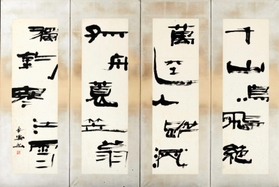 千山鳥飛絶
萬径人蹤滅
孤舟蓑笠翁
獨釣寒江雪